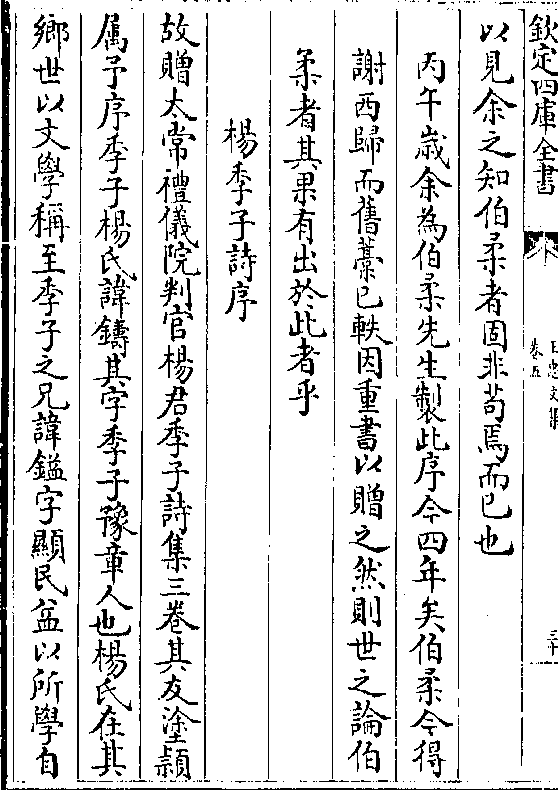 欽定四庫全書
王忠文集
卷五
三十
以見余之知伯柔者固非苟焉而已也
丙午歳余為伯柔先生製此序今四年矣伯柔今得
謝西歸而舊藁已軼因重書以贈之然則世之論伯
柔者其果有出於此者乎
楊季子詩序
故贈太常禮儀院判官楊君季子詩集三卷其友塗頴
属予序季子楊氏諱鑄其字季子豫章人也楊氏在其
鄉世以文學稱至季子之兄諱鎰字顯民益以所學自